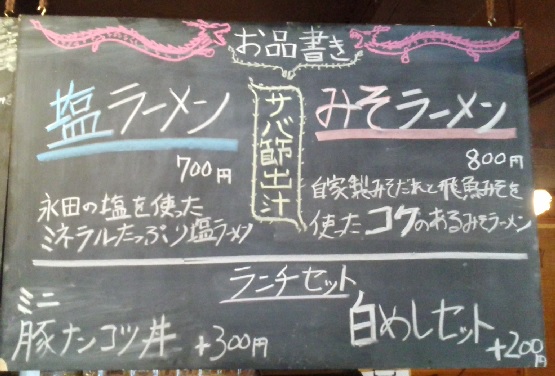 お品書き
塩ラーメン
700円
永田の塩を使った
ミネラルたっぷり塩ラーメン
サバ節出汁
みそラーメン
800円
自家製みそだれと飛魚みそを
使ったコクのあるみそラーメン
ランチセット
ミニ
豚ナンコツ丼 +300円
白めしセット
+200円